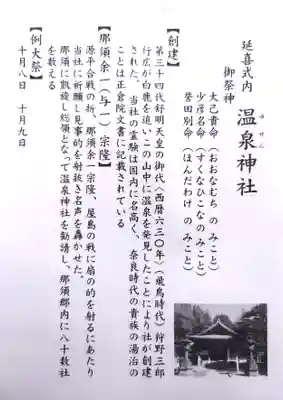 延喜式内 温泉神社
ゆぜん
御祭神
大己貴命（おおなむち の みこと）
少彦名命（すくなひこな の みこと）
誉田別命（ほんだわけ の みこと）
【創建】
第三十四代舒明天皇の御代〈西暦六三〇年〉（飛鳥時代）狩野三郎
行広が白鹿を追いこの山中に温泉を発見したことにより社が創建
された。当社の霊験は国内に名高く、奈良時代の貴族の湯治の
ことは正倉院文書に記載されている
【那須余一（与一）宗隆】
源平合戦の折、那須余一宗隆、屋島の戦に扇の的を射るにあたり
当社に祈願し見事的を射抜き名声を轟かせた。
那須に凱旋し総領となって温泉神社を勧請し、那須郡内に八十数社
を数える
【例大祭】
十月八日 十月九日